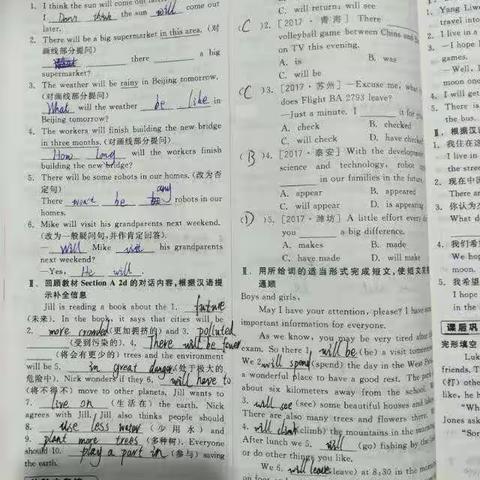 1. I think the sun will come out later.
I Don't think the sun will come out
later.
2. There will be a big supermarket in this area. (对
画线部分提问)
there a big
supermarket?
3. The weather will be rainy in Beijing tomorrow.
(对画线部分提问)
What will the weather be like in
Beijing tomorrow?
4. The workers will finish building the new bridge
in three months. (对画线部分提问)
How long will the workers finish
building the new bridge?
5. There will be some robots in our homes. (改为否
定句)
There won't be any robots in our
homes.
6. Mike will visit his grandparents next weekend.
(改为一般疑问句,并作肯定回答)
—Will Mike visit his grandparents
next weekend?
—Yes, He will.
Ⅱ. 回顾教材 Section A 2d 的对话内容,根据汉语提
示补全信息
Jill is reading a book about the 1. future
(未来). In the book, it says that cities will be
2. more crowded (更加拥挤的) and 3. polluted
(受到污染的). 4. There will be fewer
(将会有更少的) trees and the environment
will be 5. in great danger (处于极大的
危险中). Nick wonders if they 6. will have to
(将不得不) move to other planets. Jill wants to
7. live on (生活在) the earth. Nick
agrees with Jill. Jill also thinks people should
8. use less water (少用水) and
9. plant more trees (多种树). Everyone
should 10. play a part in (参与) saving
the earth.
C. will return; will see
(C)2. [2017·青海] There
volleyball game between China and
on TV this evening.
A. is B. was
C. will be
(C)3. [2017·苏州] —Excuse me,
does Flight BA 2793 leave?
—Just a minute. I it for
A. check B. checked
C. will check D. have checked
(B)4. [2017·泰安] With the development
science and technology, robo
in our families in the future.
A. appear B. appeared
C. will appear D. is appearing
(D)5. [2017·潍坊] A little effort every d
you a big difference.
A. makes B. made
C. have made D. will make
Ⅲ. 用所给词的适当形式完成短文,使短文
通顺
Boys and girls,
May I have your attention, please? I have some
important information for everyone.
As we know, you may be very tired after
exam. So there 1. will be (be) a visit tomorrow
We 2. will spend (spend) the day in the West
a wonderful place to have a good rest. The p
about six kilometers away from the school.
3. will see (see) some beautiful houses and lake
There are also many trees and flowers there.
4. will climb (climb) the mountains in the morning
After lunch we 5. will (go) fishing by the
or do other things you like.
We 6. will leave (leave) at 8:30 in the morn
1. Yang Liw
travel into
2. I live in a
3. —I hope I
moon one
—Well, I
4. I will get
5. There is
the bus.
Ⅱ. 根据汉语
1. 我住在
I live in
the stree
2. 现在中国
There ar
3. 你认为
What do
4. 我们希望
We hop
moon.
5. 我希望
I hope
in the
课题巩
完形填空
Luk
friends. T
(打) othe
like, he
"Wh
Jones ask
"So